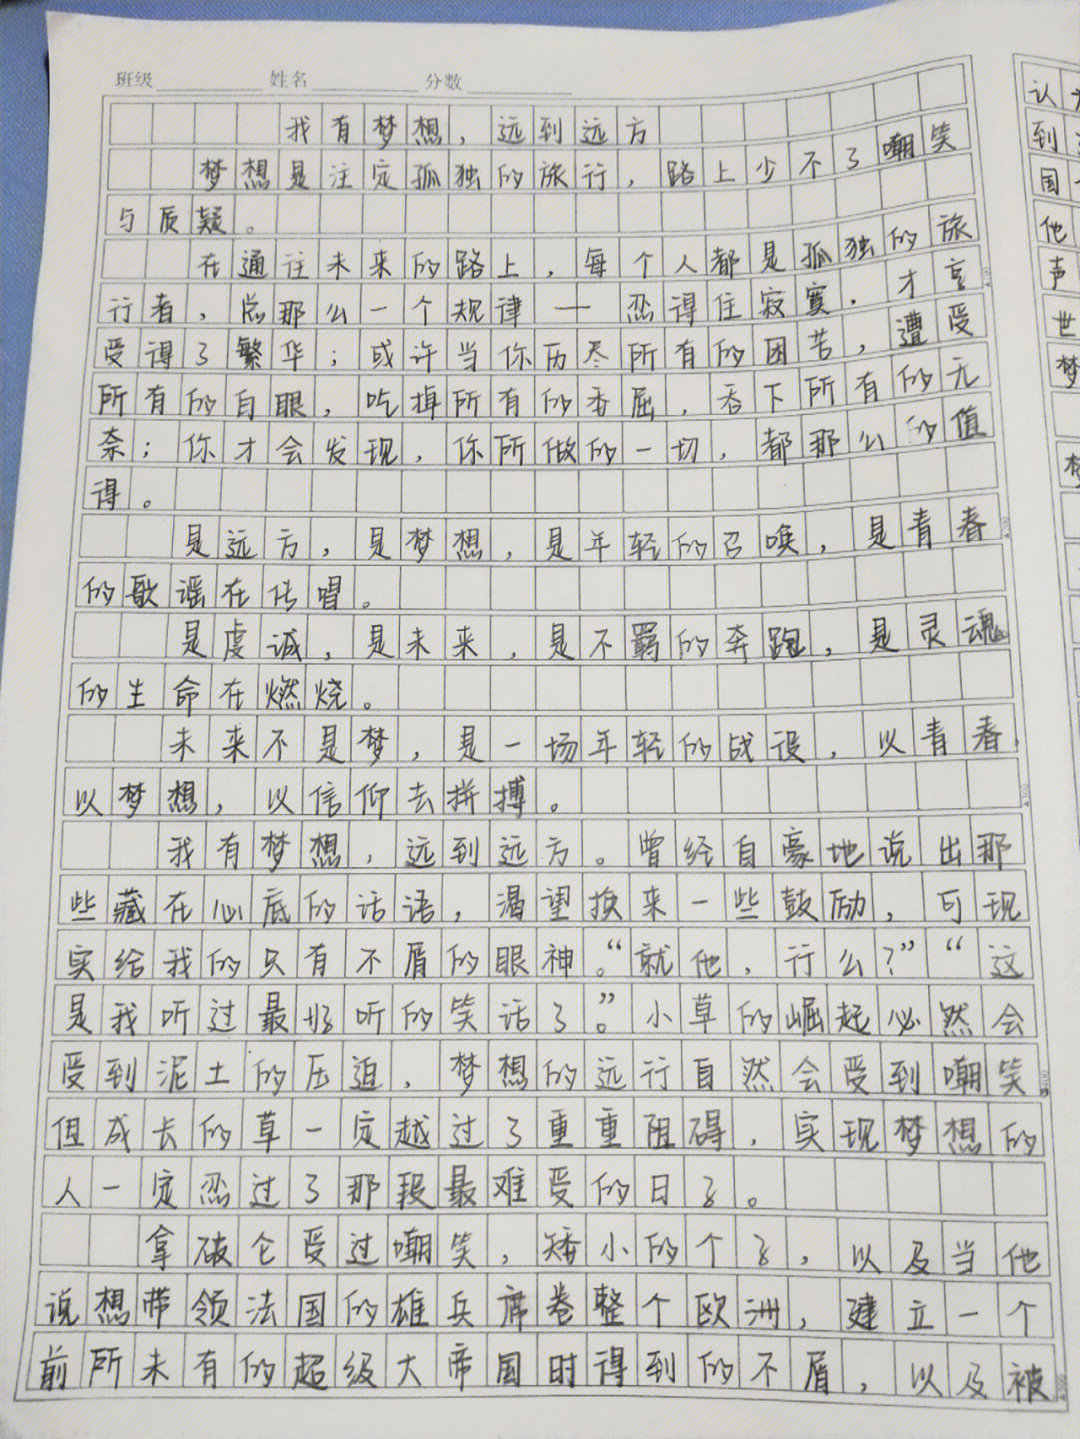 班级 姓名 分数
我有梦想，远到远方
梦想是注定孤独的旅行，路上少不了嘲笑
与质疑。
在通往未来的路上，每个人都是孤独的旅
行者，总那么一个规律——忍得住寂寞，才享
受得了繁华；或许当你历尽所有的困苦，遭受
所有的白眼，吃掉所有的委屈，吞下所有的无
奈；你才会发现，你所做的一切，都那么的值
得。
是远方，是梦想，是年轻的召唤，是青春
的歌谣在传唱。
是虔诚，是未来，是不羁的奔跑，是灵魂
的生命在燃烧。
未来不是梦，是一场年轻的战役，以青春，
以梦想，以信仰去拼搏。
我有梦想，远到远方。曾经自豪地说出那
些藏在心底的话语，渴望换来一些鼓励，可现
实给我的只有不屑的眼神。“就他，行么？”“这
是我听过最好听的笑话了”。小草的崛起必然会
受到泥土的压迫，梦想的远行自然会受到嘲笑
但成长的草一定越过了重重阻碍，实现梦想的
人一定忍过了那段最难受的日子。
拿破仑受过嘲笑，矮小的个子，以及当他
说想带领法国的雄兵席卷整个欧洲，建立一个
前所未有的超级大帝国时得到的不屑，以及被
认
到
国
他
声
世
梦
梦